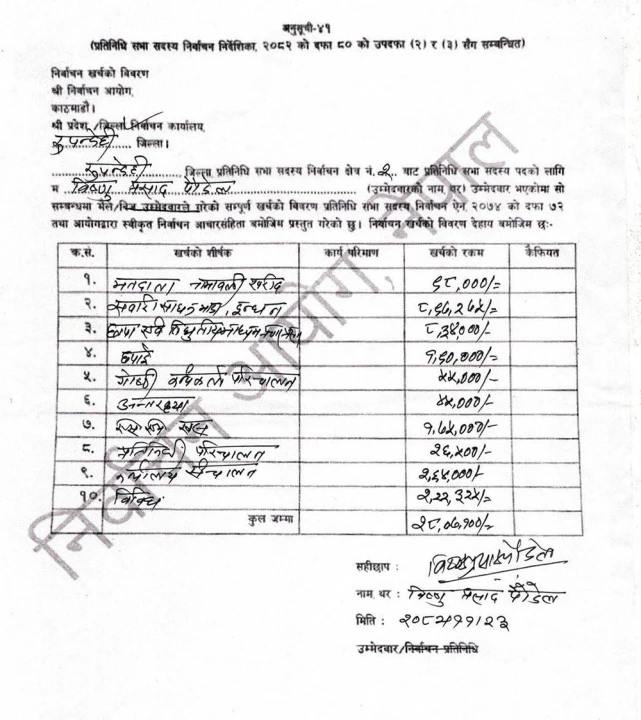 अनुसूची-४१
(प्रतिनिधि सभा सदस्य निर्वाचन निर्देशिका, २०८२ को दफा ८० को उपदफा (२) र (३) सँग सम्बन्धित)
निर्वाचन खर्चको विवरण
श्री निर्वाचन आयोग,
काठमाडौं।
श्री प्रदेश/जिल्ला निर्वाचन कार्यालय,
रुपन्देही जिल्ला।
रुपन्देही जिल्ला प्रतिनिधि सभा सदस्य निर्वाचन क्षेत्र नं. २ बाट प्रतिनिधि सभा सदस्य पदको लागि
म विष्णु प्रसाद पौडेल (उम्मेदवारको नाम, थर) उम्मेदवार भएकोमा सो
सम्बन्धमा मैले/निज उम्मेदवारले गरेको सम्पूर्ण खर्चको विवरण प्रतिनिधि सभा सदस्य निर्वाचन ऐन, २०७४ को दफा ७२
तथा आयोगद्वारा स्वीकृत निर्वाचन आचारसंहिता बमोजिम प्रस्तुत गरेको छु। निर्वाचन खर्चको विवरण देहाय बमोजिम छः-
क्र.सं. खर्चको शीर्षक कार्य परिमाण खर्चको रकम कैफियत
१. मतदाता नामावली खरीद ६८,०००/=
२. सवारी साधन भाडा, इन्धन
३. ८,३४,०००/-
४. छपाई १,६०,०००/=
५. गोष्ठी परिचालन ५५,०००/-
६. ५५,०००/-
७. १,७५,०००/-
८. प्रतिनिधी परिचालन २६,५००/-
९. कार्यालय संचालन २,६४,०००/-
१०. विविध २,२२,३२५/=
कुल जम्मा २८,२७,१००/-
सहीछाप : विष्णुप्रसाद पौडेल
नाम, थर : विष्णु प्रसाद पौडेल
मिति : २०८२।११।२३
उम्मेदवार/निर्वाचन प्रतिनिधि
निर्वाचन आयोग, नेपाल